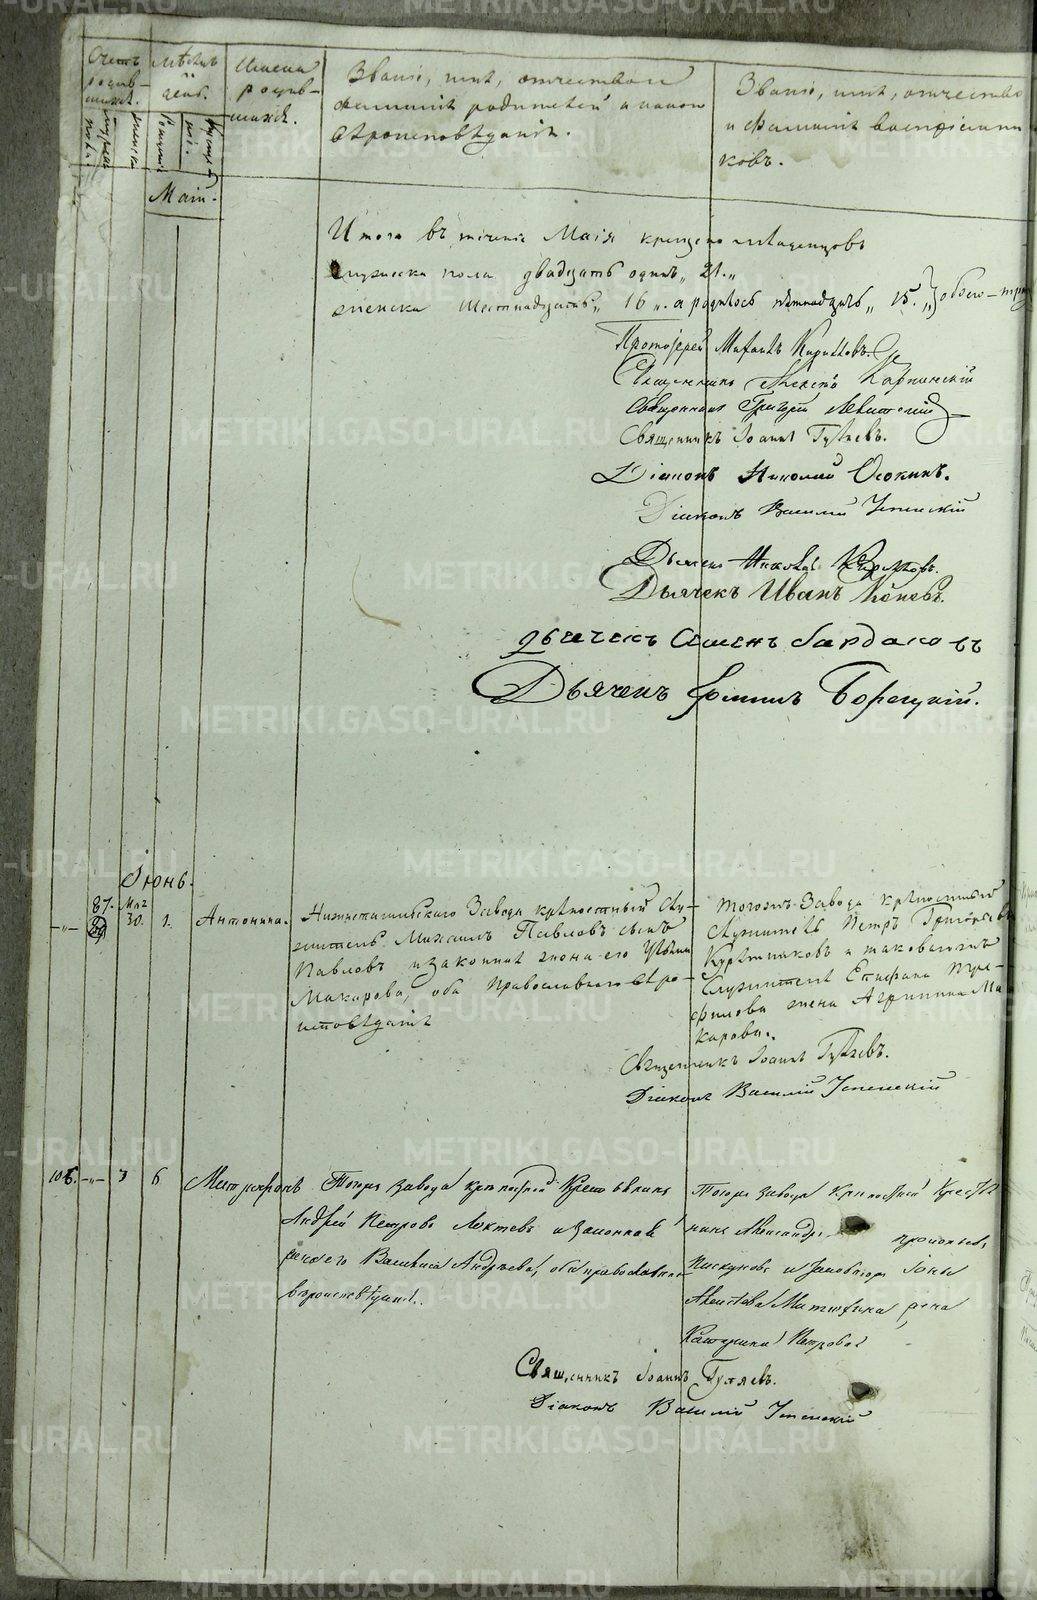 METRIKI.GASO-URAL.RU
Счетъ родив-
шихся.
Мѣсяцъ
день.
Имена
родив-
шихся.
Званіе, имя, отчество и
фамилія родителей и какого
вѣроисповѣданія.
Званіе, имя, отчество
и фамилія воспріемни
ковъ.
Маій.
Итого въ теченіе Маія крещено младенцовъ
мужеска пола двадцать одинъ „ 21. „
женска шестнадцать „ 16 „. а родилось пятнадцать „ 15. „
Протоіерей Михаилъ Кирилловъ.
Священникъ Алексѣй Карпинскій
Священникъ Григорій Левитскій
Священникъ Іоаннъ Гуляевъ.
Діаконъ Николай Осокинъ.
Діаконъ Василій Успенскій
Дьячекъ Николай Кирилловъ.
Дьячекъ Иванъ Коневъ.
дьячекъ Семенъ бардаковъ
Дьячекъ Филипъ Борецкій.
Іюнь.
87. Мая 30. 1. Антонина.
Нижнетагильскаго Завода крѣпостный Слу-
житель Михаилъ Павловъ сынъ
Павловъ и законная жена его Ульяна
Макарова, оба Православнаго вѣро-
исповѣданія
тогожъ Завода крѣпостный
Служитель Петръ Григорьевъ
и таковагожъ
Служителя Епифана Пер-
филова жена Агрипина Ма
карова.
Священникъ Іоаннъ Гуляевъ.
Діаконъ Василій Успенскій
106. -„- 3 6 Митрофанъ
Тогоже завода крѣпостной Крестьянинъ
Андрей Петровъ Локтевъ и законная
жена его Василиса Андреева, оба православнаго
вѣроисповѣданія.
Тогоже завода Крѣпостной Крестья
нинъ Александръ Прокопьевъ
Пискуновъ и умовшаго Іоны
Алексѣева Митюхина жена
Катерина Петрова
Священникъ Іоаннъ Гуляевъ.
Діаконъ Василій Успенскій